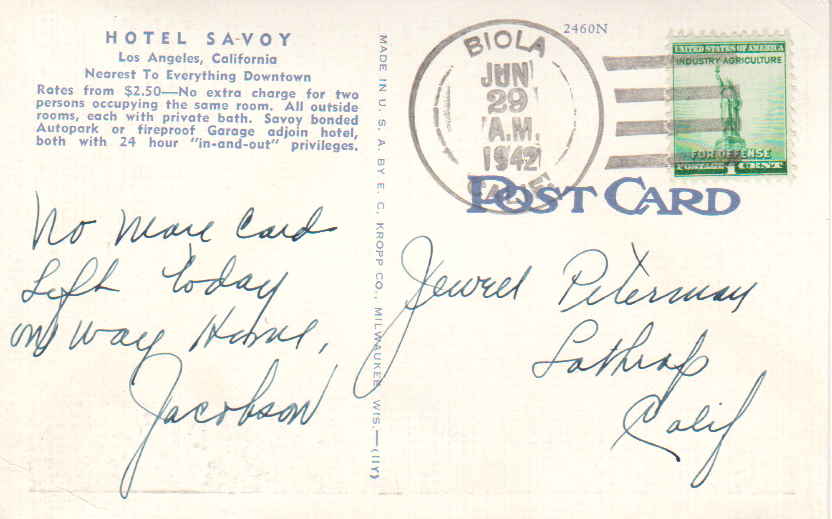 HOTEL SA-VOY
Los Angeles, California
Nearest To Everything Downtown
Rates from $2.50—No extra charge for two
persons occupying the same room. All outside
rooms, each with private bath. Savoy bonded
Autopark or fireproof Garage adjoin hotel,
both with 24 hour "in-and-out" privileges.
No more Card
Left today
on way Home,
Jacobson
MADE IN U. S. A. BY E. C. KROPP CO., MILWAUKEE, WIS.—(11Y)
2460N
BIOLA
JUN
29
A.M.
1942
CALIF.
UNITED STATES OF AMERICA
INDUSTRY AGRICULTURE
FOR DEFENSE
POSTAGE 1 CENT
POST CARD
Jewell Peterman
Lathrop
Calif